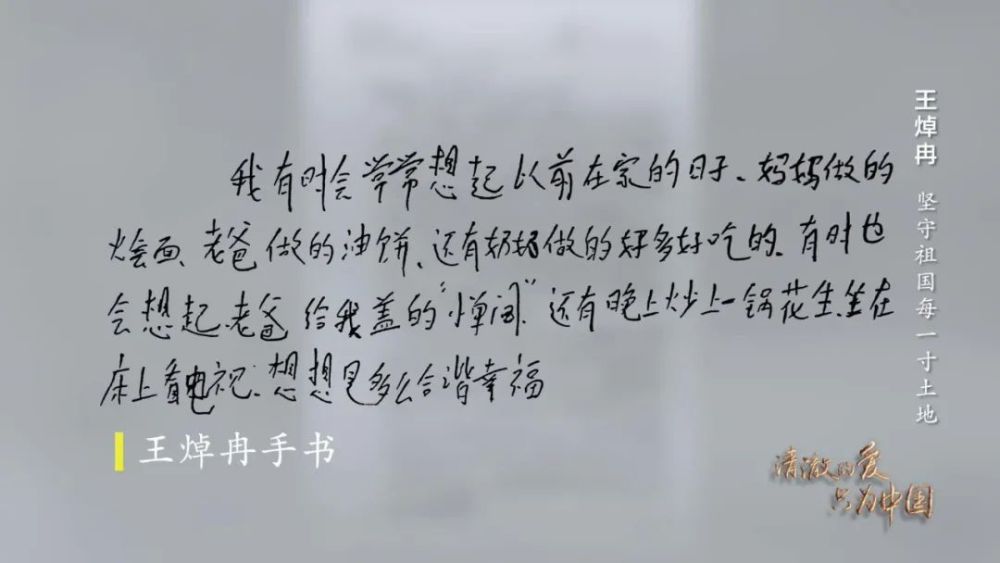 我有时会常常想起以前在家的日子、妈妈做的
烩面、老爸做的油饼、还有奶奶做的好多好吃的、有时也
会想起老爸给我盖的“小单间”还有晚上炒上一锅花生、坐在
床上看电视、想想是多么合谐幸福
王焯冉手书
王焯冉 坚守祖国每一寸土地
清澈的爱
只为中国